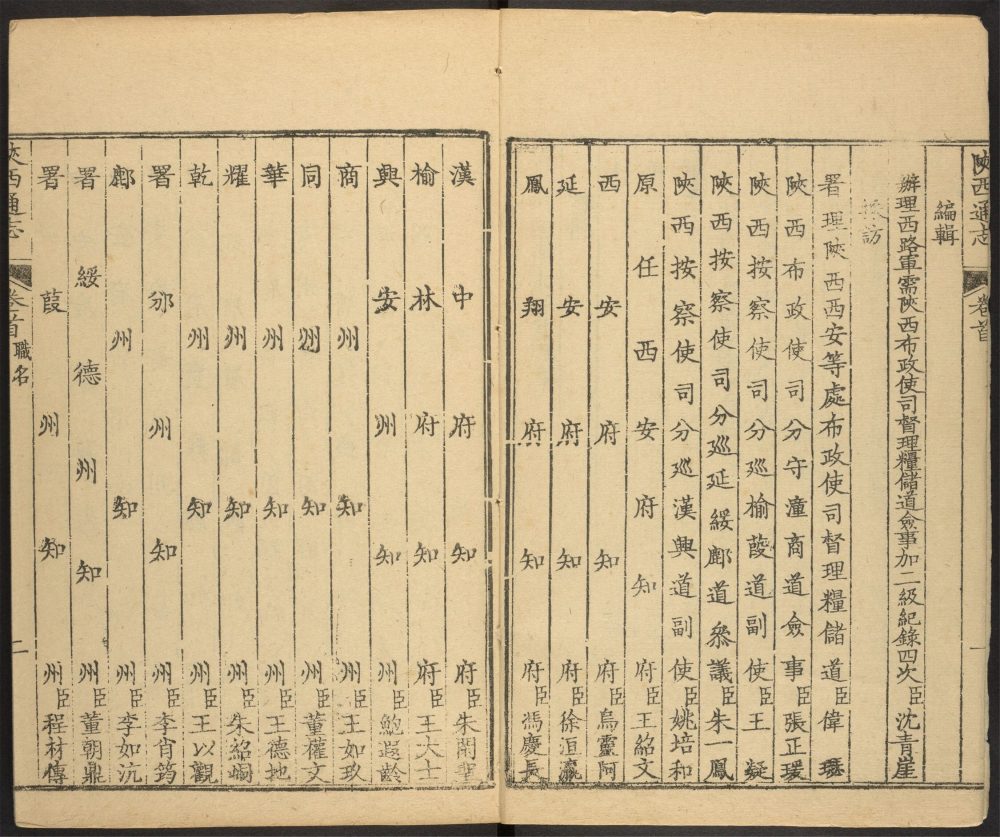 陝西通志 卷首 一
編輯
辦理西路軍需陝西布政使司督理糧儲道僉事加二級紀錄四次臣沈青崖
採訪
署理陝西西安等處布政使司督理糧儲道臣偉璱
陝西布政使司分守潼商道僉事臣張正瑗
陝西按察使司分巡榆葭道副使臣王凝
陝西按察使司分巡延綏鄜道叅議臣朱一鳳
陝西按察使司分巡漢興道副使臣姚培和
原任西安府知府臣王紹文
西安府知府臣烏靈阿
延安府知府臣徐洹瀛
鳳翔府知府臣馮慶長
漢中府知府臣朱閑聖
榆林府知府臣王大士
興安州知州臣鮑遐齡
商州知州臣王如玖
同州知州臣董權文
華州知州臣王德地
耀州知州臣朱紹峒
乾州知州臣王以觀
署邠州知州臣李肖筠
鄜州知州臣李如沆
署綏德州知州臣董朝鼎
署葭州知州臣程材傳
陝西通志 卷首 職名 二